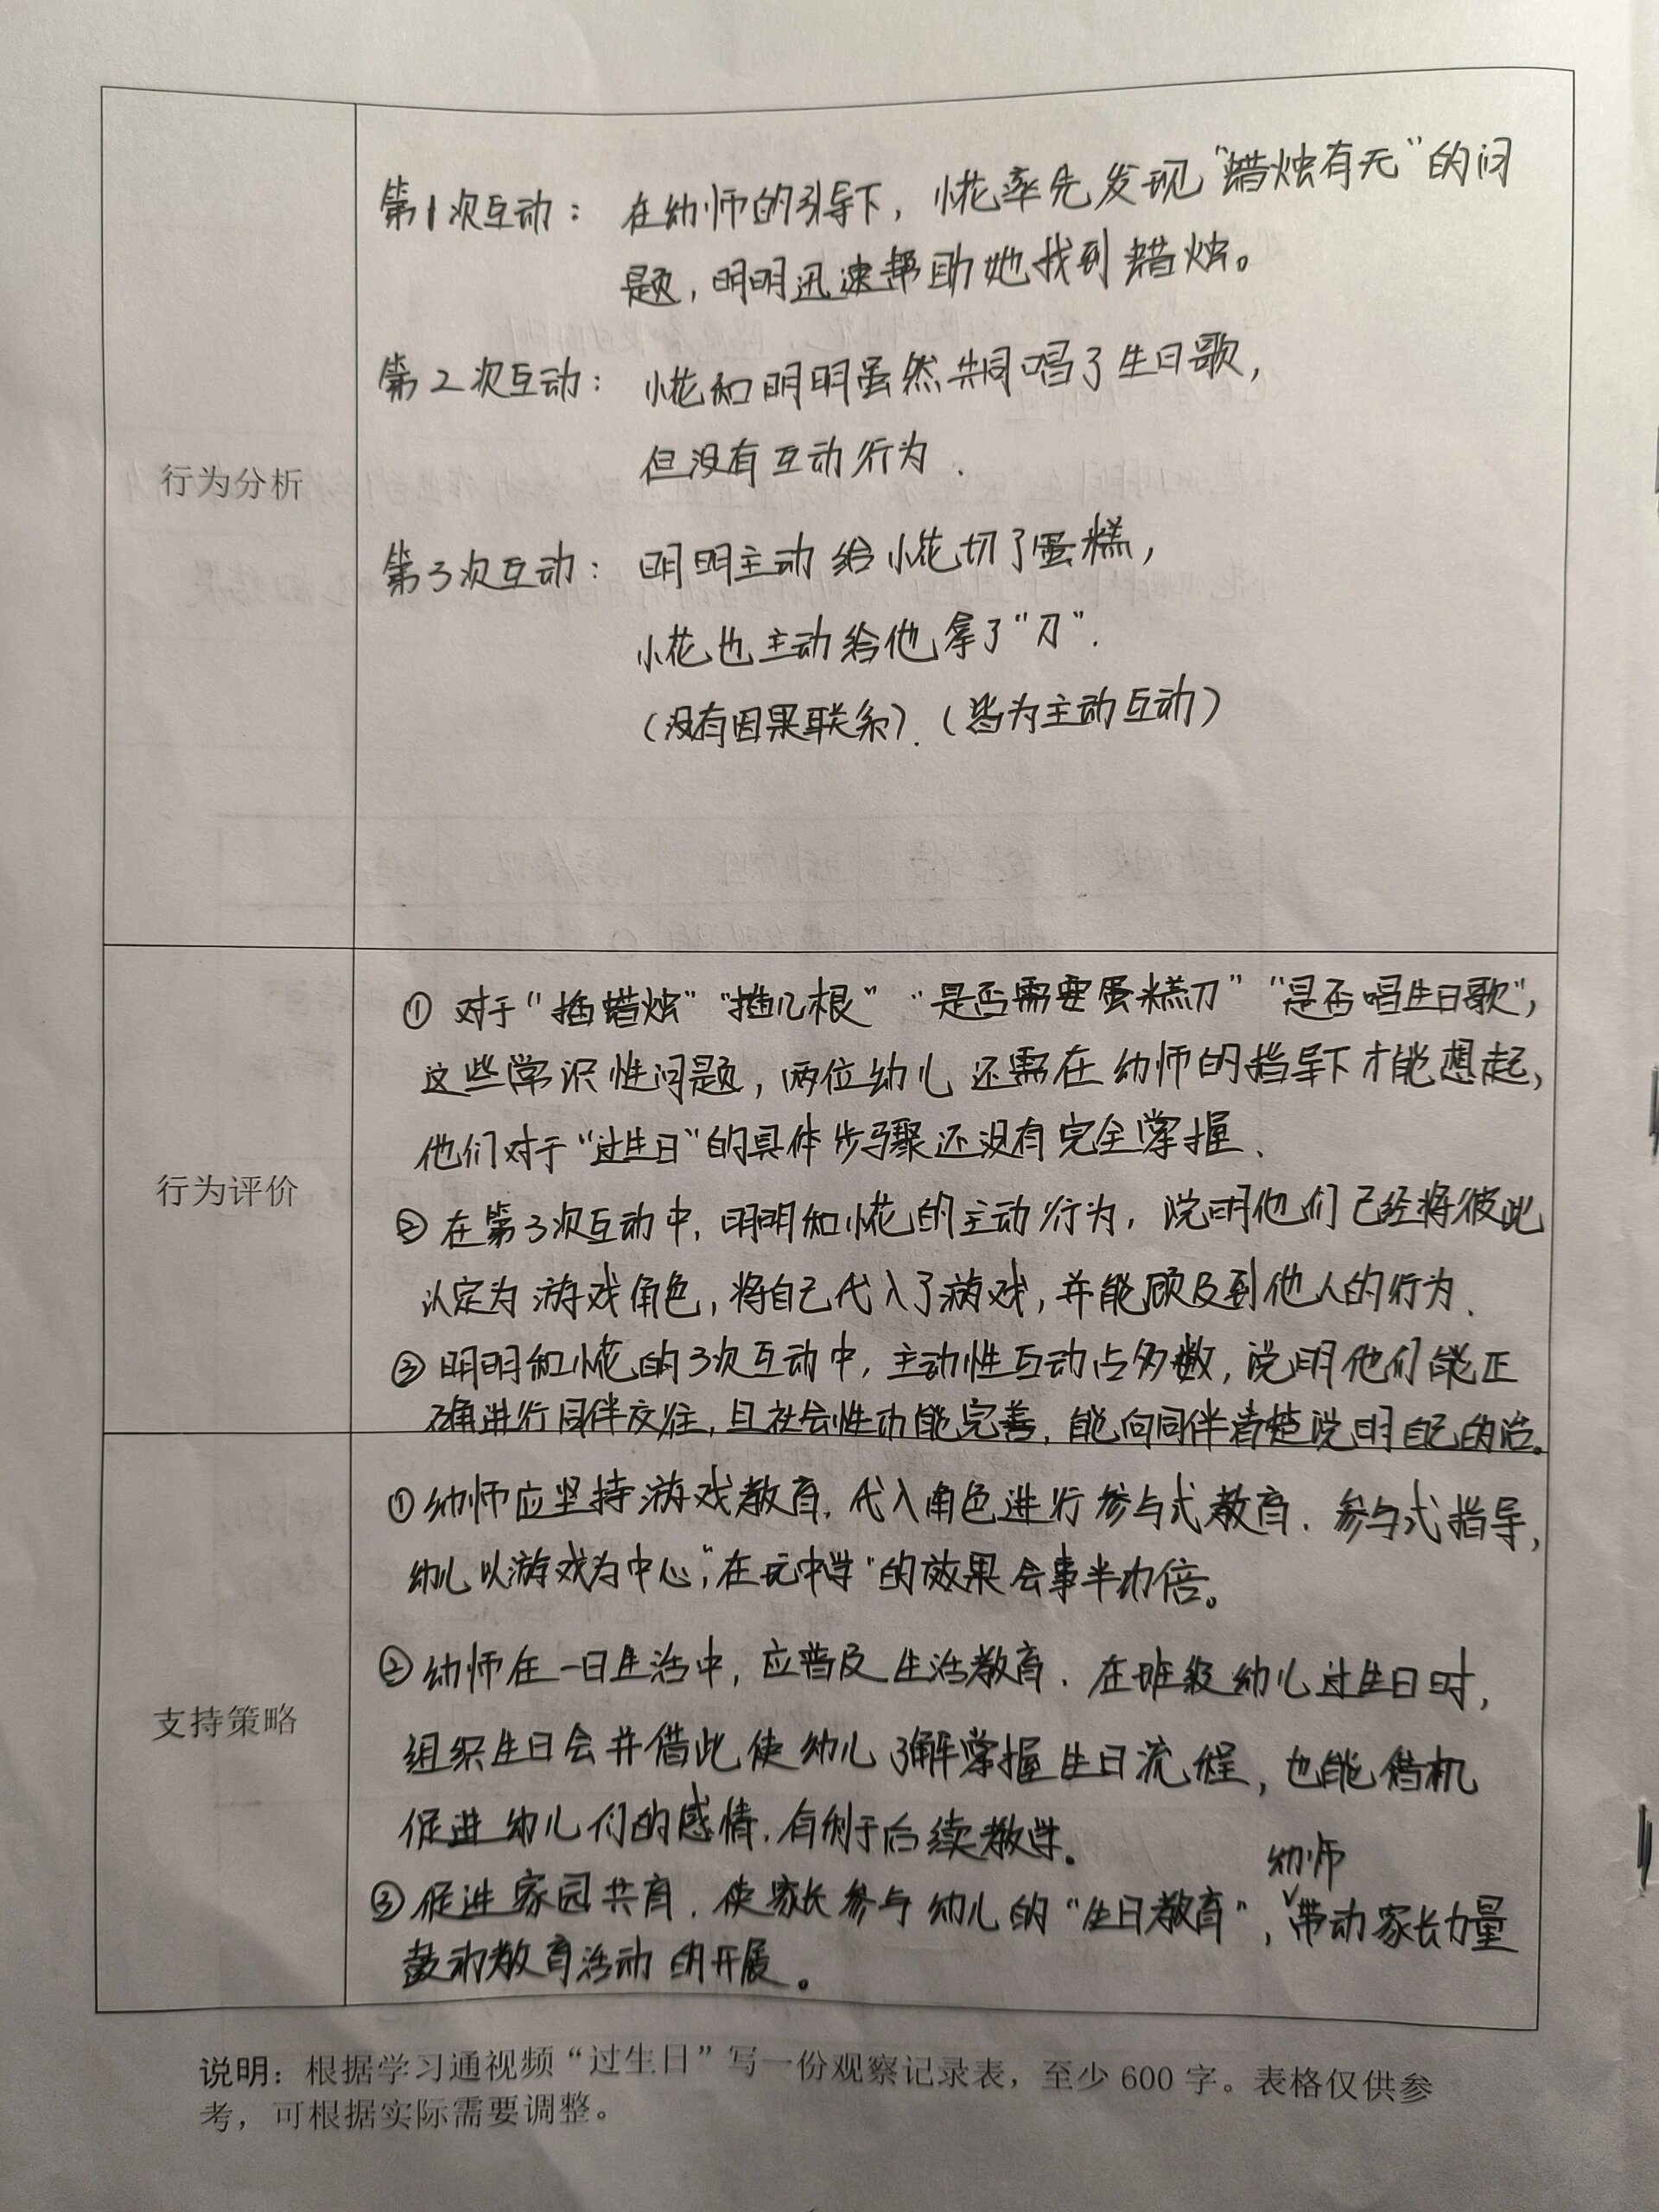 行为分析
第1次互动：在幼师的引导下，小花率先发现“蜡烛有无”的问
题，明明迅速帮助她找到蜡烛。
第2次互动：小花和明明虽然共同唱了生日歌，
但没有互动行为．
第3次互动：明明主动给小花切了蛋糕，
小花也主动给他拿了“刀”．
（没有因果联系）．（皆为主动互动）
行为评价
① 对于“插蜡烛”“插几根”“是否需要蛋糕刀”“是否唱生日歌”，
这些常识性问题，两位幼儿还需在幼师的指导下才能想起，
他们对于“过生日”的具体步骤还没有完全掌握．
② 在第3次互动中，明明和小花的主动行为，说明他们已经将彼此
认定为游戏角色，将自己代入了游戏，并能顾及到他人的行为．
③ 明明和小花的3次互动中，主动性互动占多数，说明他们能正
确进行同伴交往，且社会性功能完善，能向同伴清楚说明自己的话。
支持策略
① 幼师应坚持游戏教育，代入角色进行参与式教育．参与式指导，
幼儿以游戏为中心，“在玩中学”的效果会事半功倍。
② 幼师在一日生活中，应普及生活教育．在班级幼儿过生日时，
组织生日会并借此使幼儿了解掌握生日流程，也能借机
促进幼儿们的感情，有利于后续教学。
③ 促进家园共育．使家长参与幼儿的“生日教育”，幼师带动家长力量
鼓动教育活动的开展。
说明：根据学习通视频“过生日”写一份观察记录表，至少 600 字。表格仅供参
考，可根据实际需要调整。